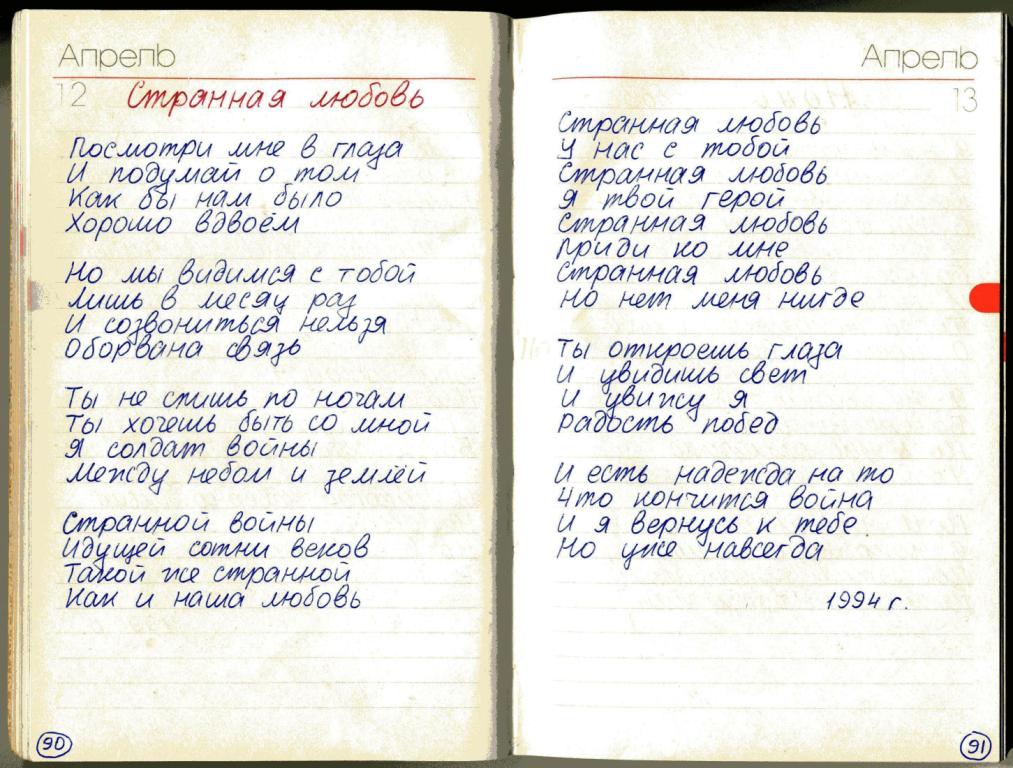 Апрель
12
Странная любовь
Посмотри мне в глаза
И подумай о том
Как бы нам было
Хорошо вдвоём
Но мы видимся с тобой
Лишь в месяц раз
И созвониться нельзя
Оборвана связь
Ты не спишь по ночам
Ты хочешь быть со мной
Я солдат войны
Между небом и землёй
Странной войны
Идущей сотни веков
Такой же странной
Как и наша любовь
90
Апрель
13
Странная любовь
У нас с тобой
Странная любовь
Я твой герой
Странная любовь
Приди ко мне
Странная любовь
Но нет меня нигде
Ты откроешь глаза
И увидишь свет
И увижу я
Радость побед
И есть надежда на то
Что кончится война
И я вернусь к тебе
Но уже навсегда
1994 г.
91